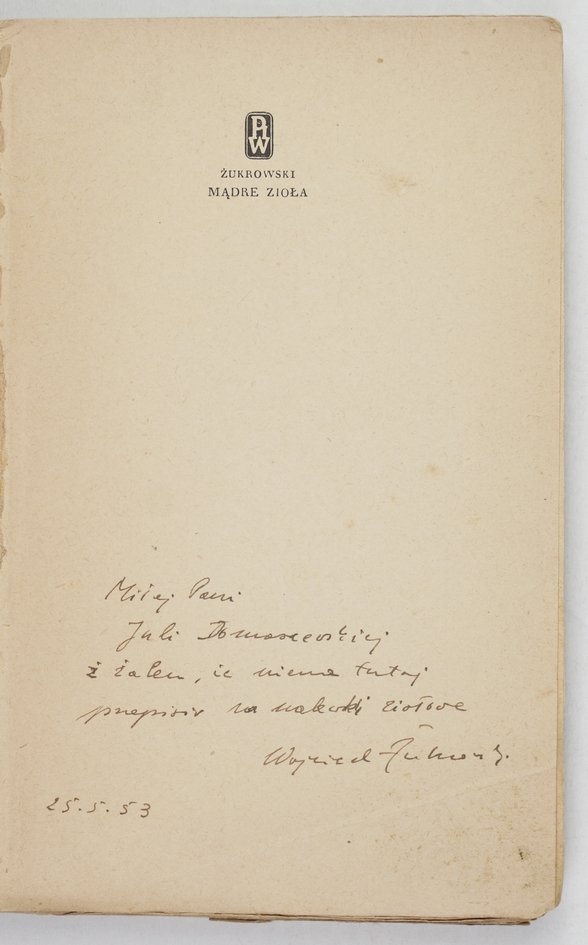 PIW
ŻUKROWSKI
MĄDRE ZIOŁA
Miłej Pani
Juli Domaszewskiej
z żalem, że niema tutaj
przepisów na nalewki ziołowe
Wojciech Żukrowski.
25.5.53